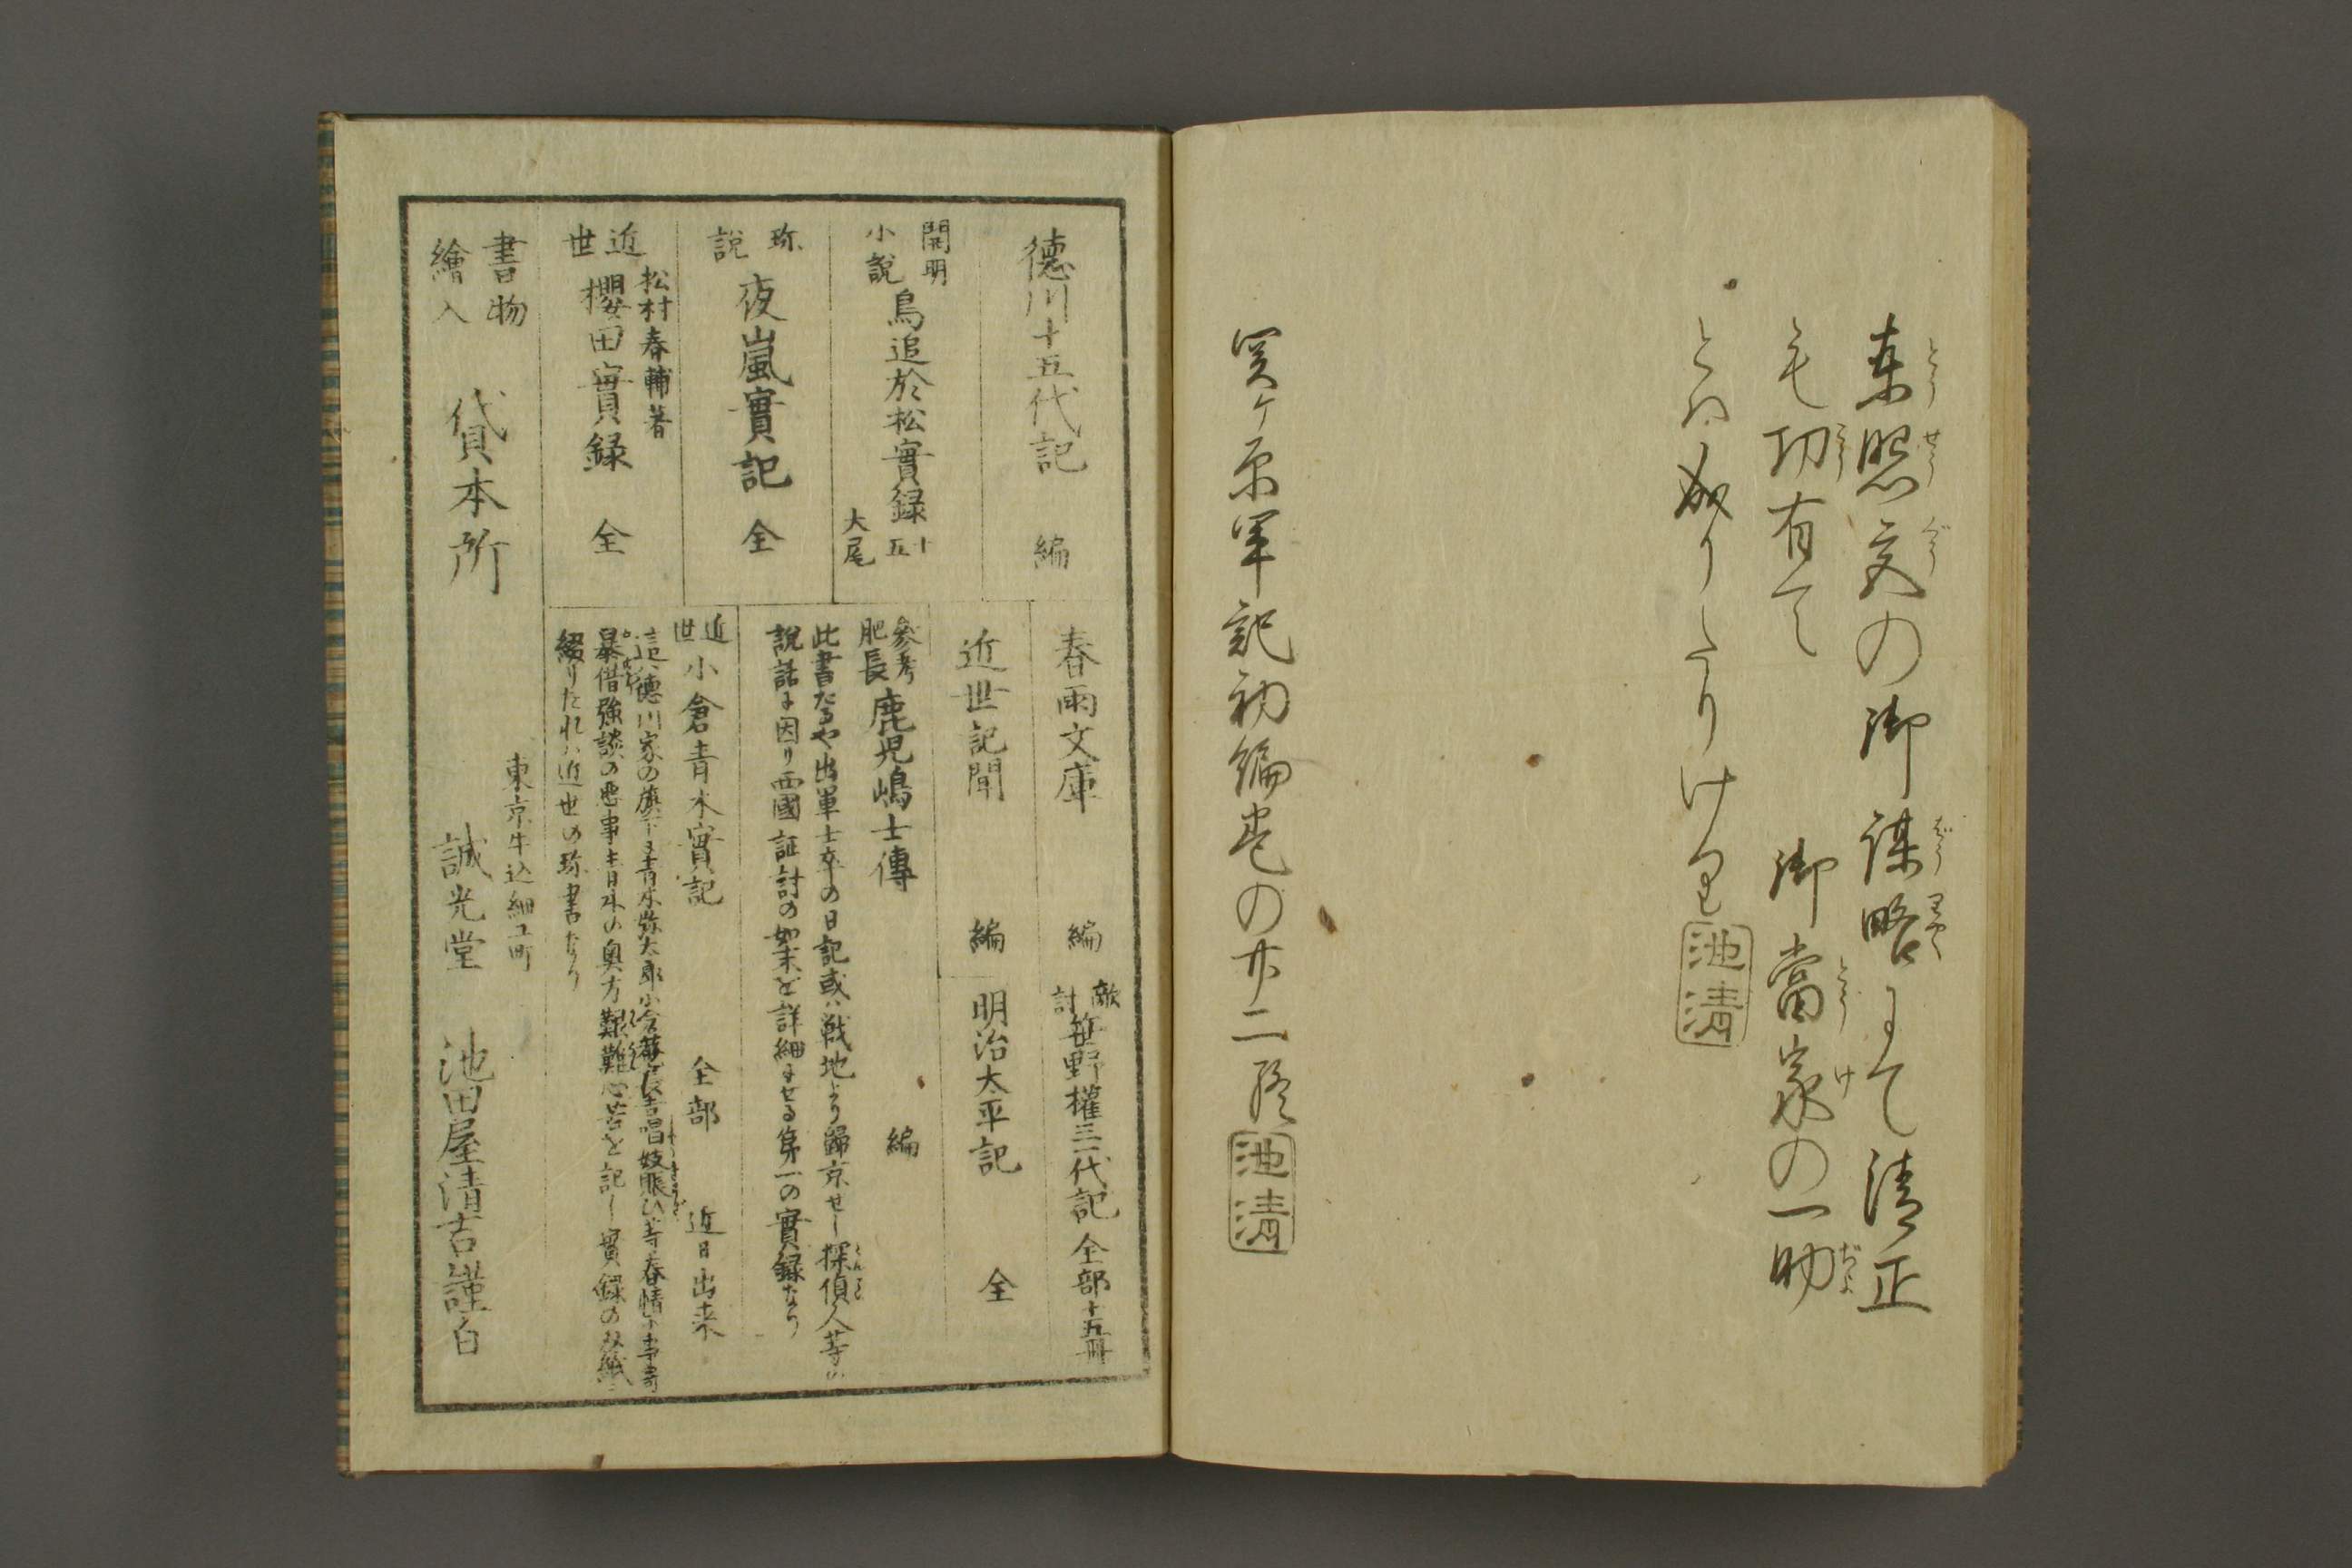 東照宮の御謀略にて清正
も功有て　御當家の一助
とは成りたりける
池清
関ヶ原軍記初編巻の廿二終
池清
徳川十五代記　編
開明小説　鳥追於松實録　十五大尾
珎説　夜嵐實記　全
近世　櫻田實録　全
松村春輔著
春雨文庫　編
敵討　笹野權三代記　全部十五冊
近世記聞　編
明治太平記　全
參考肥長　鹿児嶋士傳　編
此書たるや出軍士卒の日記或ハ戦地より歸京せし探偵人等の
説話に因り西國証討の始末を詳細にせる第一の實録なり
近世　小倉青木實記　全部　近日出来
這ハ徳川家の旗下に青木弥太郎小倉菴長吉唱妓賑ひ等春情
暴借強談の悪事青木の奥方艱難心苦を記し實録の双紙
綴りたれハ近世の珎書なり
書物繪入　貸本所
東京牛込細工町
誠光堂　池田屋清吉謹白